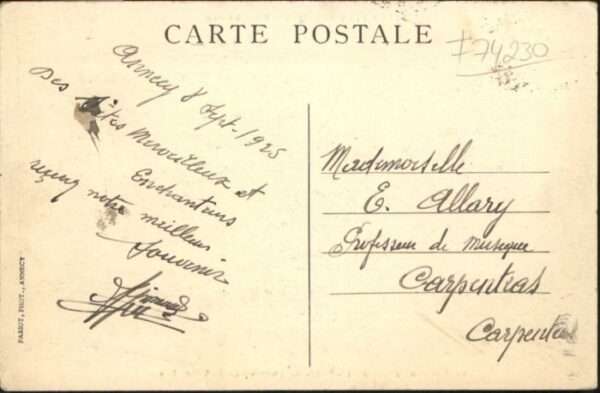 CARTE POSTALE
74230
Annecy 8 Sept. 1925
Des sites Merveilleux et
Enchanteurs
reçevez notre meilleur
Souvenir
Mademoiselle
E. Allary
Professeur de Musique
Carpentras
Carpentras
PARIOT, PHOT., ANNECY